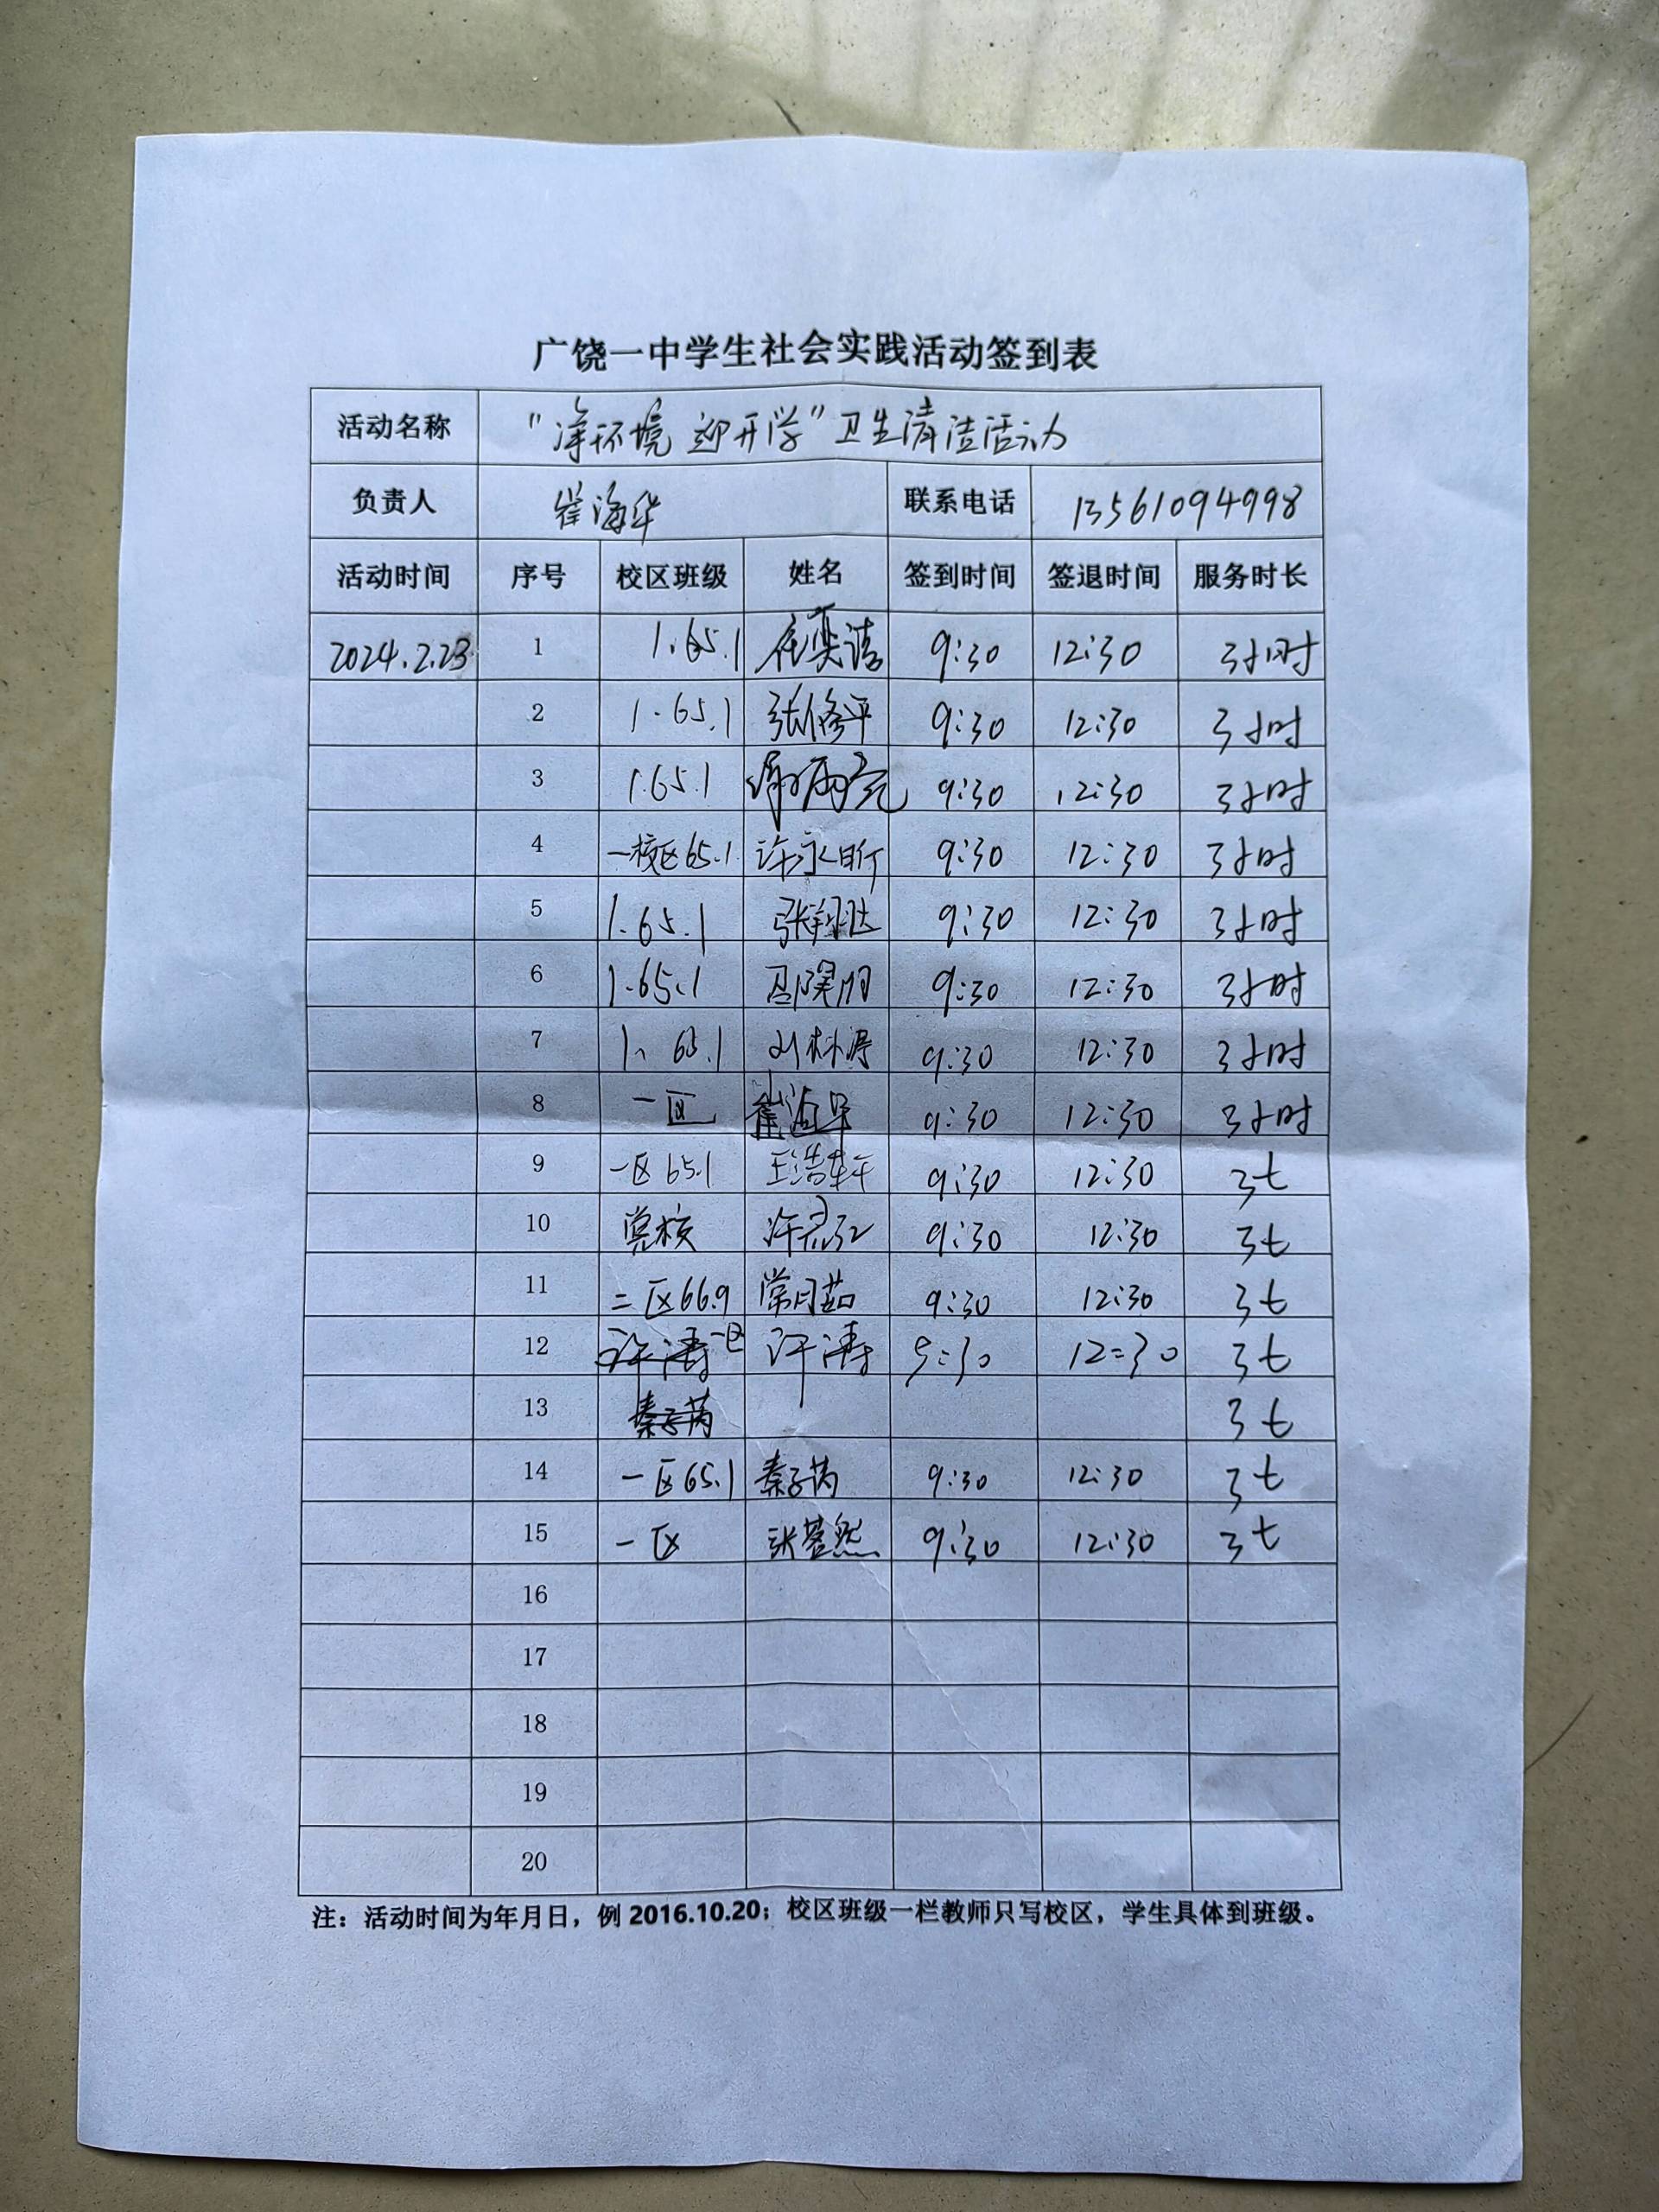 广饶一中学生社会实践活动签到表
活动名称 "净环境 迎开学"卫生清洁活动
负责人 崔海华 联系电话 13561094998
活动时间 序号 校区班级 姓名 签到时间 签退时间 服务时长
2024.2.23 1 1.65.1 9:30 12:30 3小时
2 1.65.1 张修平 9:30 12:30 3小时
3 1.65.1 9:30 12:30 3小时
4 一校区65.1 许永昕 9:30 12:30 3小时
5 1.65.1 张翔达 9:30 12:30 3小时
6 1.65.1 9:30 12:30 3小时
7 1、65.1 9:30 12:30 3小时
8 一区 崔海华 9:30 12:30 3小时
9 一区65.1 王浩轩 9:30 12:30 3t
10 9:30 12:30 3t
11 二区66.9 常月茹 9:30 12:30 3t
12 许涛 一区 许涛 9:30 12:30 3t
13 秦子芮 3t
14 一区65.1 秦子芮 9:30 12:30 3t
15 一区 9:30 12:30 3t
16
17
18
19
20
注：活动时间为年月日，例 2016.10.20；校区班级一栏教师只写校区，学生具体到班级。